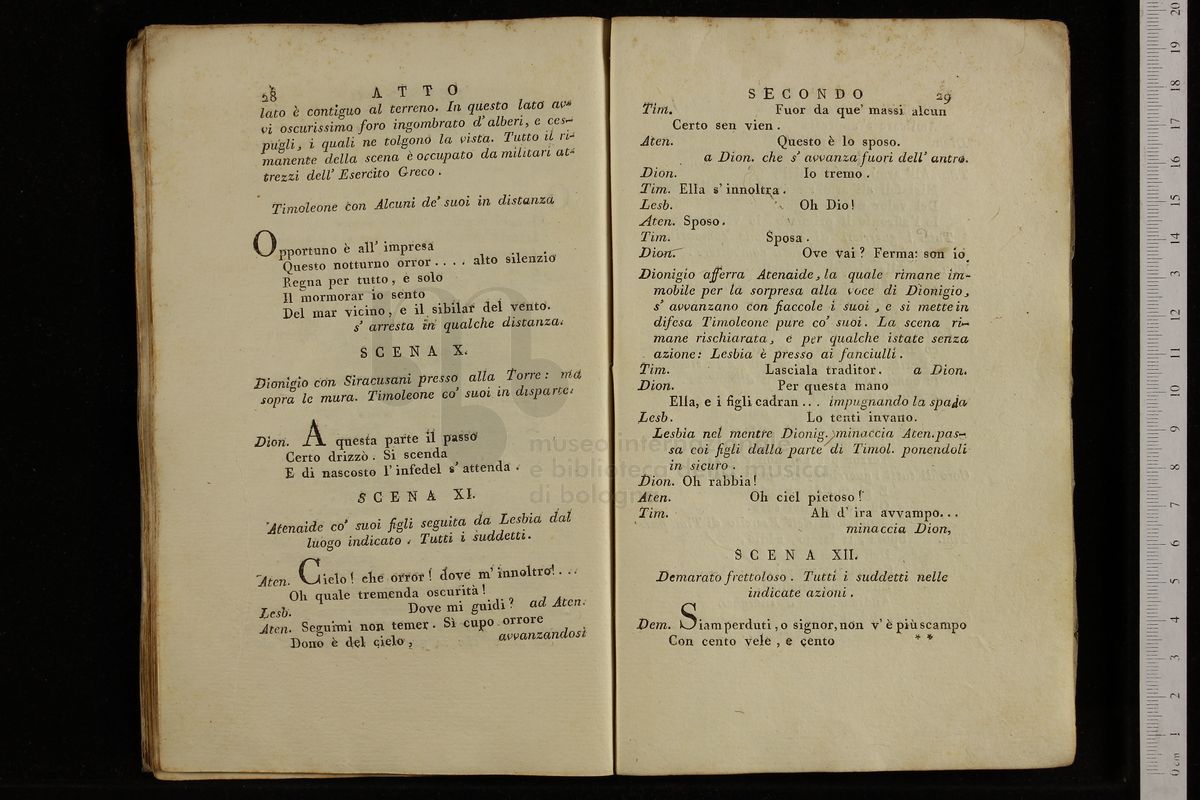 28 ATTO
lato è contiguo al terreno. In questo lato av-
vi oscurissimo foro ingombrato d'alberi, e ces-
pugli, i quali ne tolgono la vista. Tutto il ri-
manente della scena è occupato da militari at-
trezzi dell' Esercito Greco.
Timoleone con Alcuni de' suoi in distanza
Opportuno è all' impresa
Questo notturno orror.... alto silenzio
Regna per tutto, e solo
Il mormorar io sento
Del mar vicino, e il sibilar del vento.
s' arresta in qualche distanza.
SCENA X.
Dionigio con Siracusani presso alla Torre: ma
sopra le mura. Timoleone co' suoi in disparte.
Dion. A questa parte il passo
Certo drizzò. Si scenda
E di nascosto l'infedel s' attenda.
SCENA XI.
Atenaide co' suoi figli seguita da Lesbia dal
luogo indicato. Tutti i suddetti.
Aten. Cielo! che orror! dove m' innoltro!...
Oh quale tremenda oscurità!
Lesb. Dove mi guidi? ad Aten.
Aten. Seguimi non temer. Sì cupo orrore
Dono è del cielo, avvanzandosi
SECONDO 29
Tim. Fuor da que' massi alcun
Certo sen vien.
Aten. Questo è lo sposo.
a Dion. che s' avvanza fuori dell' antro.
Dion. Io tremo.
Tim. Ella s' innoltra.
Lesb. Oh Dio!
Aten. Sposo.
Tim. Sposa.
Dion. Ove vai? Ferma: son io.
Dionigio afferra Atenaide, la quale rimane im-
mobile per la sorpresa alla voce di Dionigio,
s' avvanzano con fiaccole i suoi, e si mette in
difesa Timoleone pure co' suoi. La scena ri-
mane rischiarata, e per qualche istate senza
azione: Lesbia è presso ai fanciulli.
Tim. Lasciala traditor. a Dion.
Dion. Per questa mano
Ella, e i figli cadran... impugnando la spada
Lesb. Lo tenti invano.
Lesbia nel mentre Dionig. minaccia Aten. pas-
sa coi figli dalla parte di Timol. ponendoli
in sicuro.
Dion. Oh rabbia!
Aten. Oh ciel pietoso!
Tim. Ah d' ira avvampo...
minaccia Dion,
SCENA XII.
Demarato frettoloso. Tutti i suddetti nelle
indicate azioni.
Dem. Siam perduti, o signor, non v' è più scampo
Con cento vele, e cento * *
museo internazionale
e biblioteca della musica
di bologna
0 cm 1 2 3 4 5 6 7 8 9 10 11 12 13 14 15 16 17 18 19 20